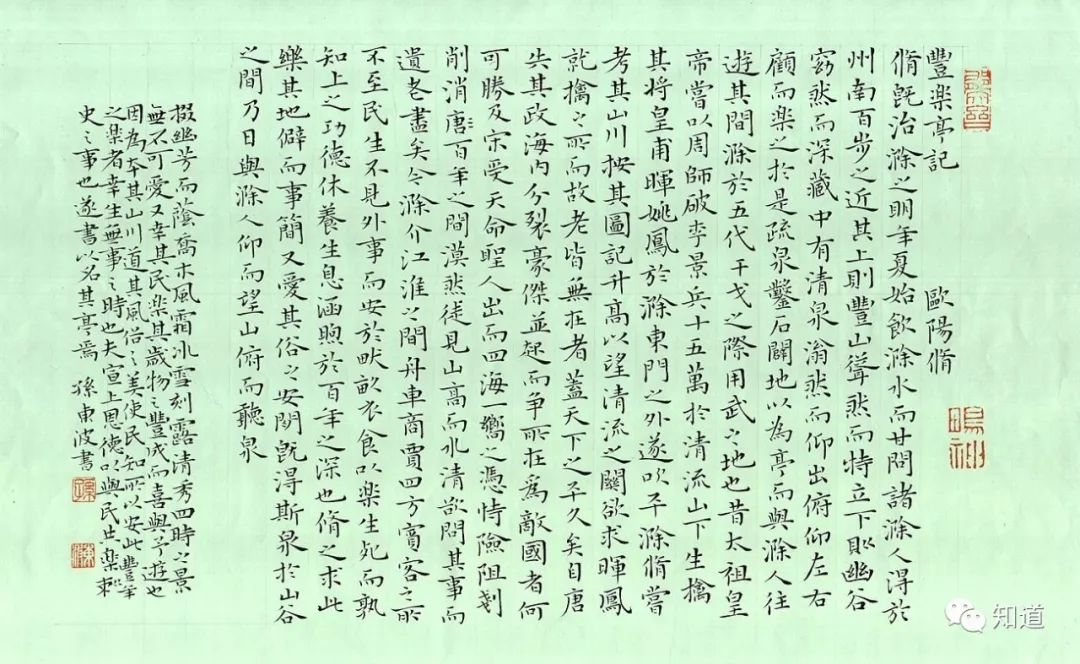 豐樂亭記 歐陽脩
脩旣治滁之明年夏始飲滁水而甘問諸滁人淂於
州南百步之近其上則豐山聳然而特立下則幽谷
窈然而深藏中有清泉滃然而仰出俯仰左右
顧而樂之於是疏泉鑿石闢地以為亭而與滁人往
遊其間滁於五代干戈之際用武之地也昔太祖皇
帝嘗以周師破李景兵十五萬於清流山下生擒
其將皇甫暉姚鳳於滁東門之外遂以平滁脩嘗
考其山川按其圖記升高以望清流之關欲求暉鳳
就擒之所而故老皆無在者蓋天下之平久矣自唐
失其政海內分裂豪傑並起而爭所在為敵國者何
可勝及宋受天命聖人出而四海一嚮之憑恃險阻剗
削消唐百年之間漠然徒見山高而水清欲問其事而
遺老盡矣今滁介江淮之間舟車商賈四方賓客之所
不至民生不見外事而安於畎畝衣食以樂生死而孰
知上之功德休養生息涵煦於百年之深也脩之來此
樂其地僻而事簡又愛其俗之安閒旣淂斯泉於山谷
之間乃日與滁人仰而望山俯而聽泉
掇幽芳而蔭喬木風霜冰雪刻露清秀四時之景
無不可愛又幸其民樂其歲物之豐成而喜與予遊也
因為本其山川道其風俗之美使民知所以安此豐年
之樂者幸生無事之時也夫宣上恩德以與民共樂刺
史之事也遂書以名其亭焉 孫東波書
知道